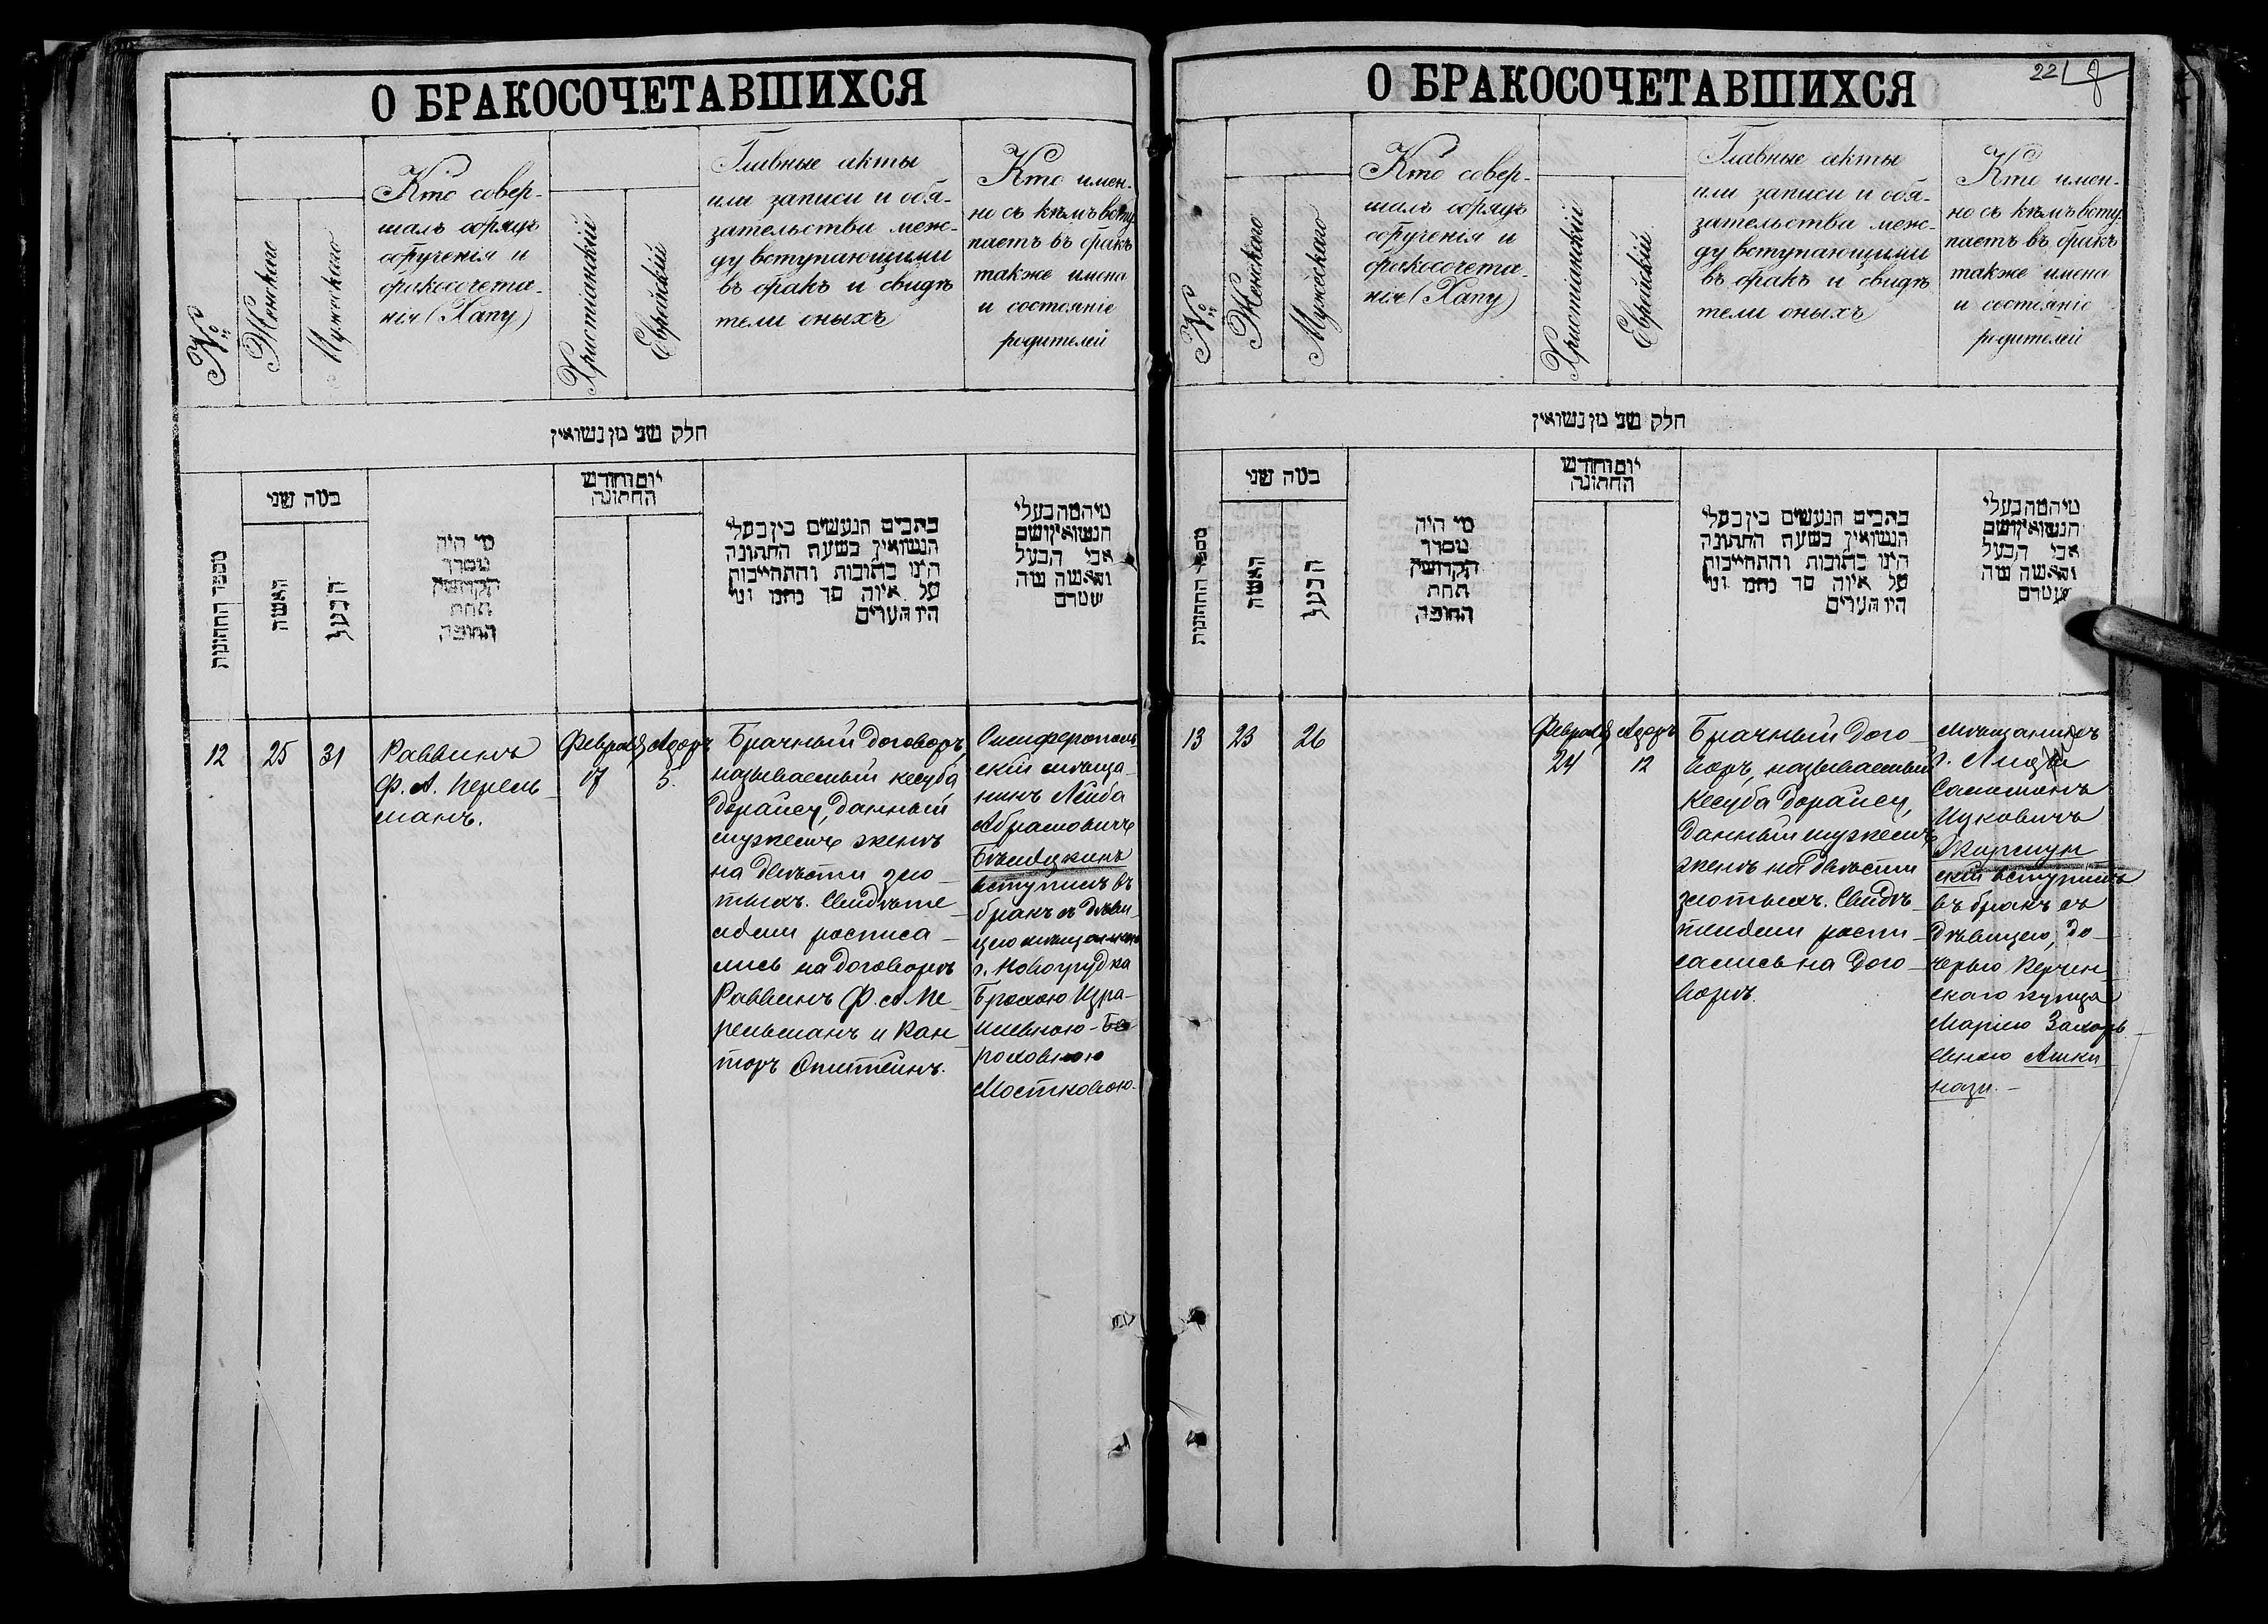 О БРАКОСОЧЕТАВШИХСЯ
№
Женскаго
Мужскаго
Кто совер-
шалъ обрядъ
обрученія и
бракосочета-
нія (Хапу)
Христіанскій
Еврейскій
Главные акты
или записи и обя-
зательства меж-
ду вступающими
въ бракъ и свидѣ
тели оныхъ
Кто имен-
но съ кѣмъ всту
паетъ въ бракъ
также имена
и состояніе
родителей
חלק שני מן נשואין
מספר החתונות
במה שני
האשה
הבעל
מי היה
מסדר
הקדושין
תחת
החופה
יום וחודש
החתונה
כתבים הנעשים בין בעלי
הנשואין בשעת החתונה
הינו כתובות והתחייבות
על איזה סך נחמו ומי
היו העדים
מיהמה בעלי
הנשואין ושם
אבי הבעל
והאשה
12
25
31
Раввинъ
Ф. А. Перель-
манъ.
Февраль
17
Адоръ
5.
Брачный договоръ,
называемый кесуба
дорайсу, данный
мужемъ женѣ
на двѣсти зло-
тыхъ. Свидѣте-
лями росписа-
лись на договорѣ
Раввинъ Ф. А. Пе-
рельманъ и Кан-
торъ Општейнъ.
Симферополь
скій мѣща-
нинъ Лейба
Абрамовичъ
вступилъ въ
бракъ съ дѣви-
цею
г. Новогрудка
Брохою Изра-
илевною-
Мостковою.
О БРАКОСОЧЕТАВШИХСЯ
221
№
Женскаго
Мужескаго
Кто совер-
шалъ обрядъ
обрученія и
бракосочета-
нія (Хапу)
Христіанскій
Еврейскій
Главные акты
или записи и обя-
зательства меж-
ду вступающими
въ бракъ и свидѣ
тели оныхъ
Кто имен-
но съ кѣмъ всту
паетъ въ бракъ
также имена
и состояніе
родителей
חלק שני מן נשואין
מספר החתונות
במה שני
האשה
הבעל
מי היה
מסדר
הקדושין
תחת
החופה
יום וחודש
החתונה
כתבים הנעשים בין בעלי
הנשואין בשעת החתונה
הינו כתובות והתחייבות
על איזה סך נחמו ומי
היו העדים
מיהמה בעלי
הנשואין ושם
אבי הבעל
והאשה
13
23
26
Февраль
24
Адоръ
12
Брачный дого-
воръ, называемый
кесуба дорайсу,
данный мужемъ
женѣ на двѣсти
злотыхъ. Свидѣ-
телями роспи-
сались на дого-
ворѣ.
мѣщанинъ
г.
Саломонъ
Ицковичъ
скій вступилъ
въ бракъ съ
дѣвицею, до-
черью Керчен-
скаго купца
Маріею Захарь-
евною Ашки
нази.-